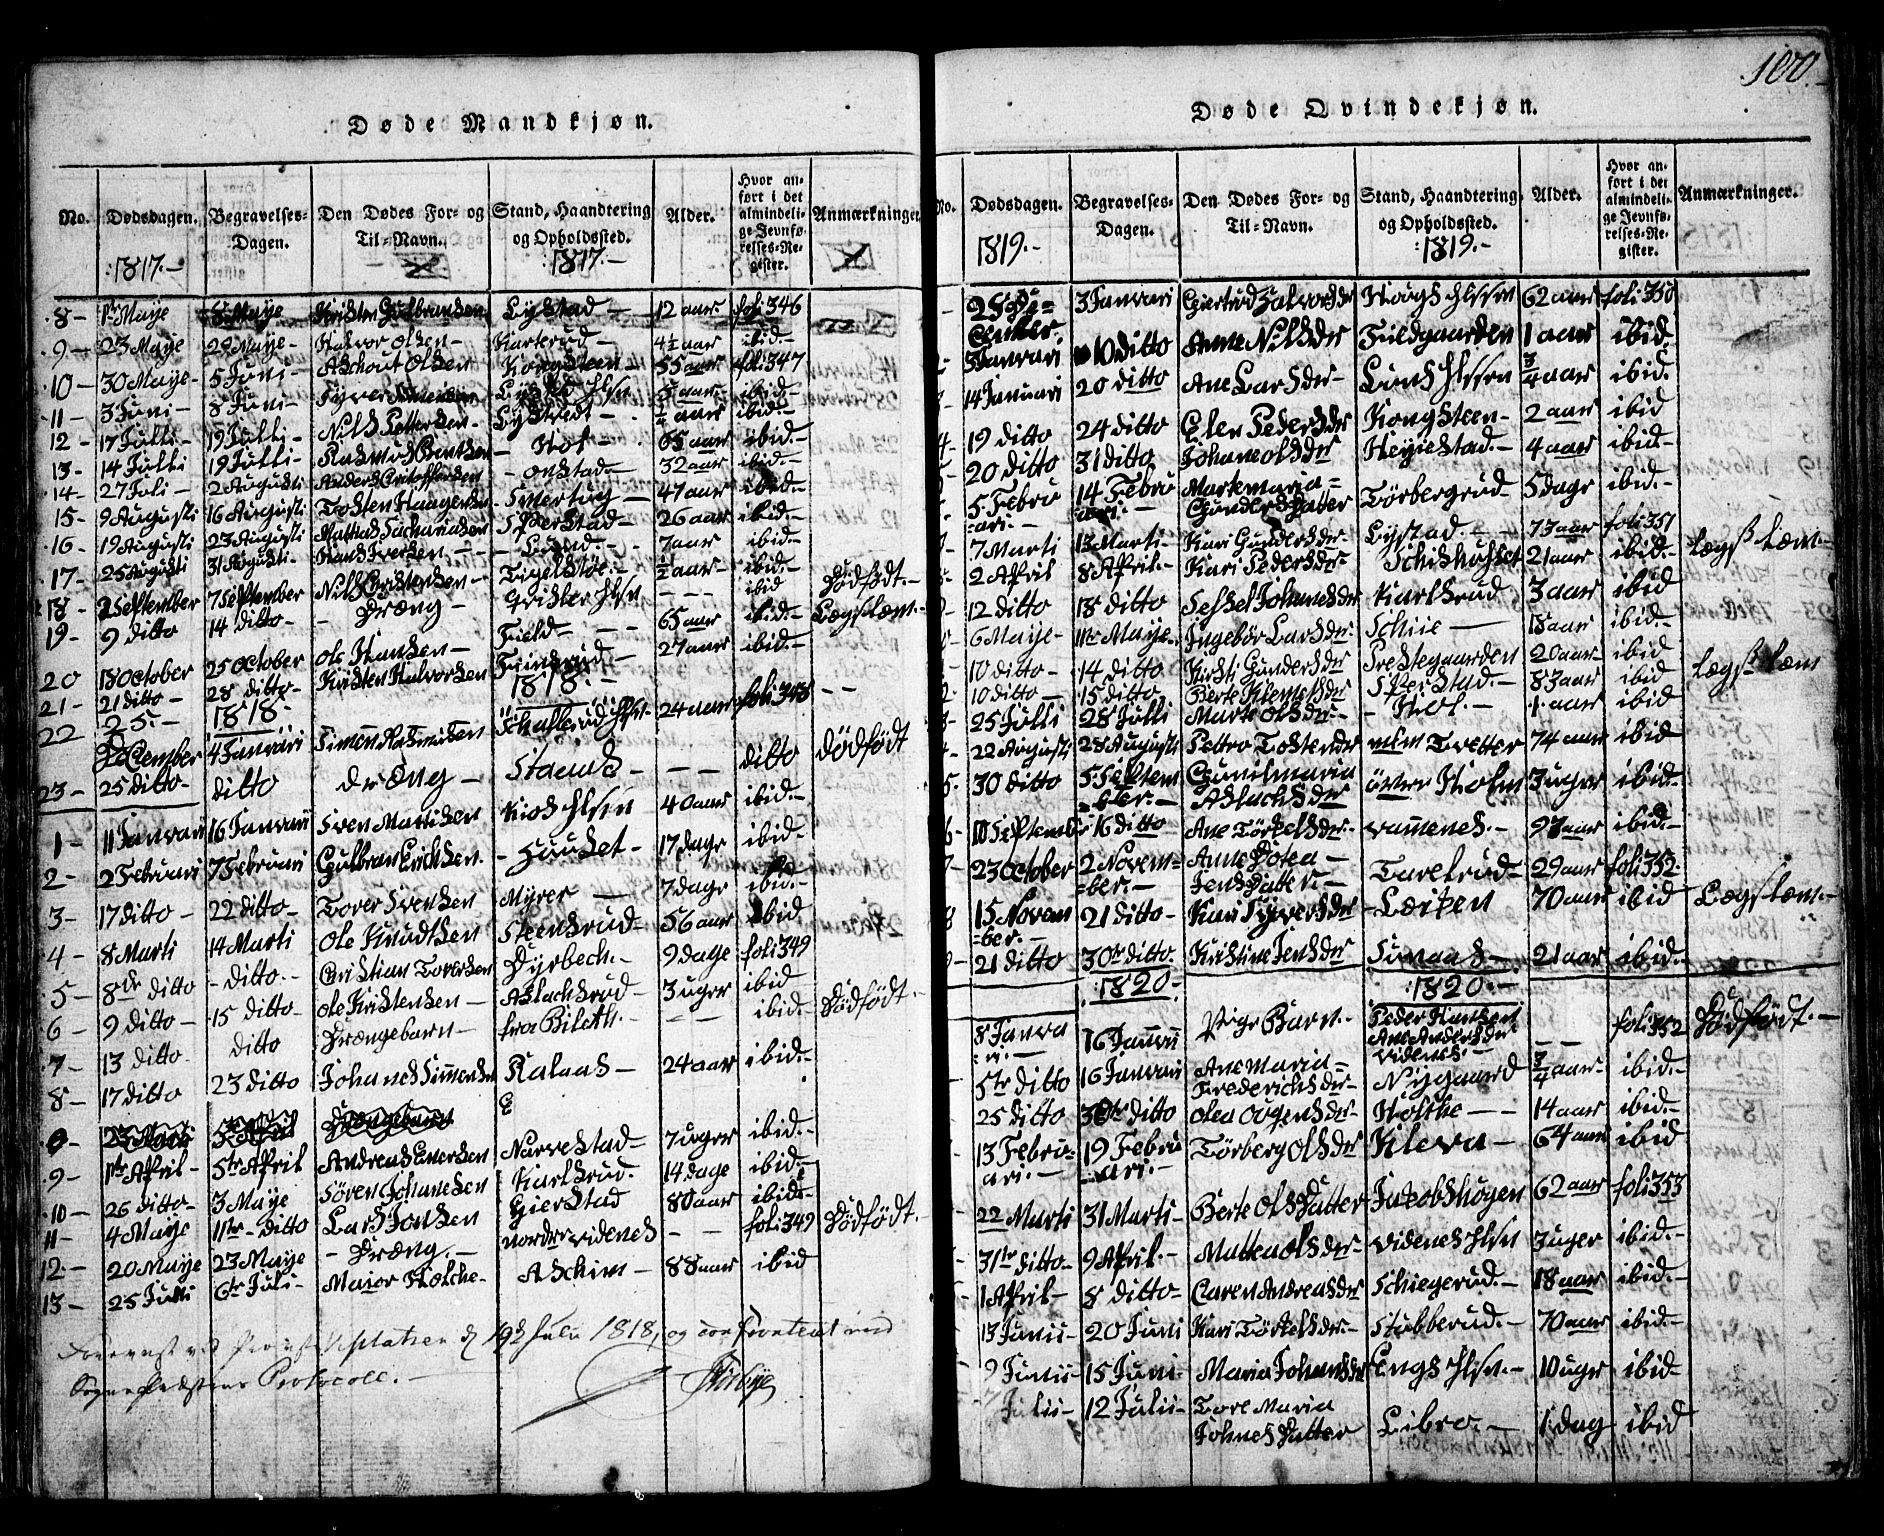 100.
Døde Mandkjøn.
No. Dødsdagen. Begravelses-Dagen. Den Dødes For- og Til-Navn. Stand, Haandtering og Opholdssted. Alder. Hvor anført i det almindelige Jevnførelses-Register. Anmærkninger.
:1817.- :1817.-
8- 1ste Maye 8 Maye Kristen Gulbransen Lystad- 12 aar- foli 346
9- 23 Maye 29 Maye- Halvor Olsen- Karterud- 4½ aar ibid.-
10- 30 Maye- 5 Juni- Aschout Olsen Kongsteen- 55 aar foli 347
11- 3 Juni- 8 Juni- ibid-
12- 17 Julli- 19 Julli- Nils Pettersen- Lystvedt- ½ aar ibid-
13- 14 Julli 19 Julli- Rasmus Bentsen Hol- 65 aar ibid.-
14- 27 Juli- 2 Augusti Anders Cristoffersen -onstad- 32 aar ibid-
15- 9 Augusti 16 Augusti Tosten Haagensen Smertug- 47 aar ibid-
16- 19 Augusti 23 Augusti Mathias Sachariasen Sperstad- 26 aar ibid.-
17- 25 Augusti 31 Augusti- Hans Iversen- 7 aar ibid.-
18- 2 September 7 September Nils Cristensen- Tigelstøe- ½ aar- ibid- Dödfödt.-
19- 9 ditto 14 ditto- Dræng- Grisler Hsn - - ibid Lægslem-
20 18 October 25 October Ole Hansen- Field- 65 aar ibid-
21- 21 ditto- 28 ditto- Kristen Halvorsen Frinsrud- 27 aar ibid.-
:1818- :1818.-
22 25- December 4 Januari Simen Rasmusen Schallerud Hsn- 24 aar foli 348 - -
23- 25 ditto- ditto dreng- Staums- - - ditto dödfödt
1- 11 Januari 16 Januari Sven Mattisen Kios Hsen 40 aar ibid-
2- 2 Februari 7 Februari Gulbran Erichsen. -Huuset- 17 dage ibid
3- 17 ditto- 22 ditto- Torer Svensen Myrer- 7 dage ibid.-
4- 8 Marti 14 Marti Ole Knudtsen Steensrud- 56 aar ibid
5- 8de ditto -ditto.- Cristian Torersen Dyrbech- 9 dage foli 349
6- 9 ditto- 15 ditto- Ole Kristensen- Aslachsrud- 3 uger ibid
7- 13 ditto- ditto Drængebarn- fra Bileth.- - - ibid.- Dödfödt.-
8- 17 ditto 23 ditto Johanes Simensen Kalaas- 24 aar ibid-
9- 23 Marti 5 April Drengebarn
9- 1ste April- 5te April Andreas Eversen Narvestad- 7 uger ibid.-
10- 26 ditto- 3 Maye Søren Johanesen Karlsrud- 14 dage ibid.-
11- 4 Maye 11te- ditto Lars Jonsen Gierstad 80 aar ibid-
12- 20 Maye 23 Maye -Dræng.- nordre videnes - - foli 349 Dödfödt.-
13- 25 Julli 6te Juli- Maior Holche- Aschim- 88 aar ibid
19de Julii 1818, og confronteret med
Sognepræstens Protocoll.-
Døde Qvindekjøn.
No. Dødsdagen. Begravelses-Dagen. Den Dødes For- og Til-Navn. Stand, Haandtering og Opholdssted. Alder. Hvor anført i det almindelige Jevnførelses-Register. Anmærkninger.
1819.- :1819.-
25 De=cember 3 Januari Giertrud Halvorsder Hougs Hsen 62 aar foli 350
3 Januari 10 ditto Anne Nilsder Fieldgaarden 1 aar ibid.
14 Januari 20 ditto Ane Larsder- Lunds Hssen ¾ aar ibid.
19 ditto 24 ditto Elen Pedersder Kongsteen- 2 aar ibid
20 ditto 31 ditto Johane Olsder Heyiestad.- 4 aar ibid.-
5 Febru=ari.- 14 Febru=ari.- Marte Maria= Gundersdatter Törbergrud- 5 dage ibid.-
7 Marti 13 Marti- Kari Gundersder- Lystad.- 73 aar foli 351
2 April 8 April.- Kari Pedersder- Schishuset 21 aar ibid.- Lægs Læm-
12 ditto 18 ditto Sessel Johanesder Karlsrud 3 aar ibid
6 Maye- 11te Maye Ingebör Larsder- Schiie- 18 aar ibid
10 ditto- 14 ditto Kirsti Gundersder Prestegaarden 20 aar ibid Lægs Læm
10 ditto- 15 ditto Berte Klemetsder Sperstad.- 83 aar ibid
25 Julli 28 Julli Marte Olsder- -Hol.- 1 aar ibid
22 Augusti 28 Augusti Pettro Tostensder mlm Tvetter 74 aar ibid
30 ditto 5 Septem=ber.- Gunilmaria Aslachsder övre Holm 3 uger ibid-
10 September 16 ditto Ane Törkelsder.- vammenes.- 97 aar ibid-
23 October 2 Novem=ber.- Anne Dotea- Jensdatter.- Tarelrud- 29 aar foli 352-
15 Novem=ber.- 21 ditto- Kari Syversder -Læiten 70 aar ibid Lægslem-
21 ditto 30te ditto Kristine Jensder Sunaas- 21 aar ibid-
:1820- :1820.-
8 Janua=ri.- 16 Januari Pige Barn.- Peder Hansen Ane Andersder videnes.- - - foli 352 Dödfödt.-
5te ditto 16 Januari Ane Maria= Frederichsder- Nygaard ¾ aar- ibid-
25 ditto 30te ditto Olea Ougensder- Holthe- 14 aar ibid.-
13 Febru=ari.- 19 Febru=ari.- Törberg Olsder Kleva- 64 aar ibid
22 Marti 31 Marti- Berte Olsdatter Jakobshögen 62 aar foli 353
31te ditto- 9 April.- Mattea Olsder- Videnes Hsn 3 uger ibid-
1 April- 8 ditto- Caren Andreasder Schiegerud.- 18 aar ibid.-
13 Junii- 20 Juni Kari Törkelsder- Stubberud.- 70 aar ibid-
9 Junii- 15 Juni- Maria Johansder Engs Hsn.- 10 uger ibid-
Julii- 12 Julii- Tore Maria Johnesdatter Libro.- 1 dag ibid